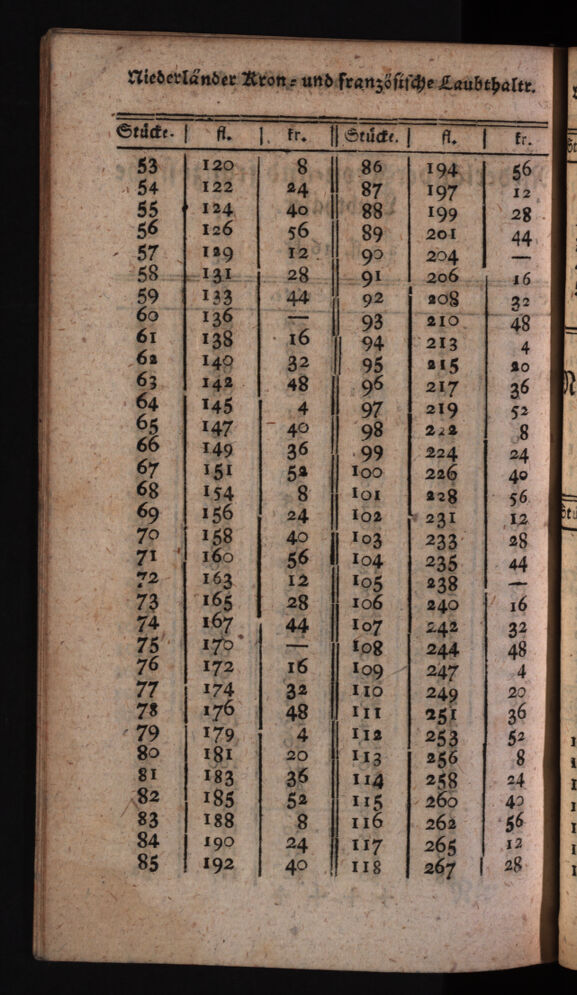 Niederländer Kron- und französische Laubthaltr.
Stücke. | fl. | kr. || Stücke. | fl. | kr.
53 120 8 86 194 56
54 122 24 87 197 12
55 124 40 88 199 28
56 126 56 89 201 44
57 129 12 90 204 —
58 131 28 91 206 16
59 133 44 92 208 32
60 136 — 93 210 48
61 138 16 94 213 4
62 140 32 95 215 20
63 142 48 96 217 36
64 145 4 97 219 52
65 147 40 98 222 8
66 149 36 99 224 24
67 151 52 100 226 40
68 154 8 101 228 56
69 156 24 102 231 12
70 158 40 103 233 28
71 160 56 104 235 44
72 163 12 105 238 —
73 165 28 106 240 16
74 167 44 107 242 32
75 170 — 108 244 48
76 172 16 109 247 4
77 174 32 110 249 20
78 176 48 111 251 36
79 179 4 112 253 52
80 181 20 113 256 8
81 183 36 114 258 24
82 185 52 115 260 40
83 188 8 116 262 56
84 190 24 117 265 12
85 192 40 118 267 28